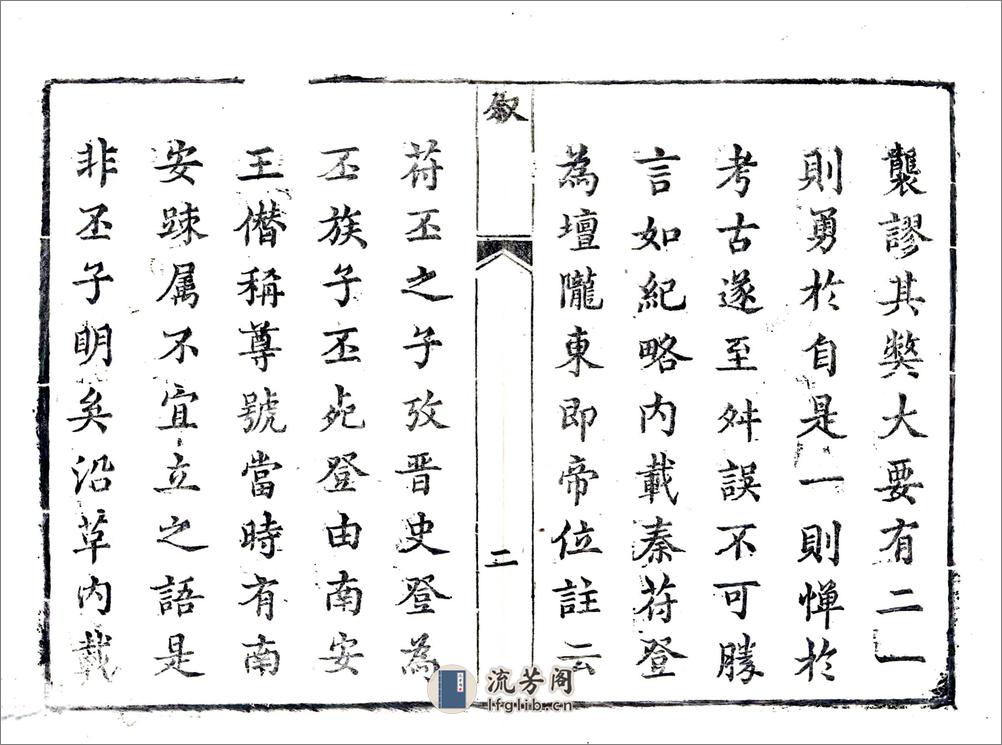 襲謬其獘大要有二一
則勇於自是一則憚於
考古遂至舛誤不可勝
言如紀略内載秦苻登
為壇隴東即帝位註云
敘
二
苻丕之子攷晋史登為
丕族子丕死登由南安
王僭稱尊號當時有南
安踈属不宜立之語是
非丕子明矣沿革内載
流芳阁
lfglib.cn